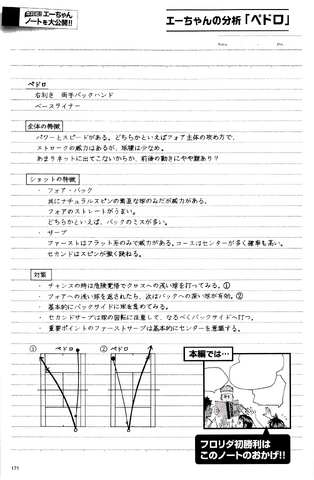 大公開!! エーちゃん
ノートを大公開!!
エーちゃんの分析「ペドロ」
Date
No.
ペドロ
右利き 両手バックハンド
ベースライナー
全体の特徴
パワーとスピードがある。どちらかといえばフォア主体の攻め方で、
ストロークの威力はあるが、球種は少なめ。
あまりネットに出てこないからか、前後の動きにやや難あり?
ショットの特徴
・ フォア・バック
共にナチュラルスピンの素直な球のみだが威力がある。
フォアのストレートがうまい。
どちらかといえば、バックのミスが多い。
・ サーブ
ファーストはフラット系のみで威力がある。コースはセンターが多く確率も高い。
セカンドはスピンが強く跳ねる。
対策
・ チャンスの時は危険覚悟でクロスへの浅い球を打ってみる。①
・ フォアへの浅い球を返されたら、次はバックへの深い球が有効。②
・ 基本的にバックサイドに球を集めてみる。
・ セカンドサーブは球の回転に注意して、なるべくバックサイドへ打つ。
・ 重要ポイントのファーストサーブは基本的にセンターを意識する。
① ペドロ
② ペドロ
本編では…
フロリダ初勝利は
このノートのおかげ!!
171